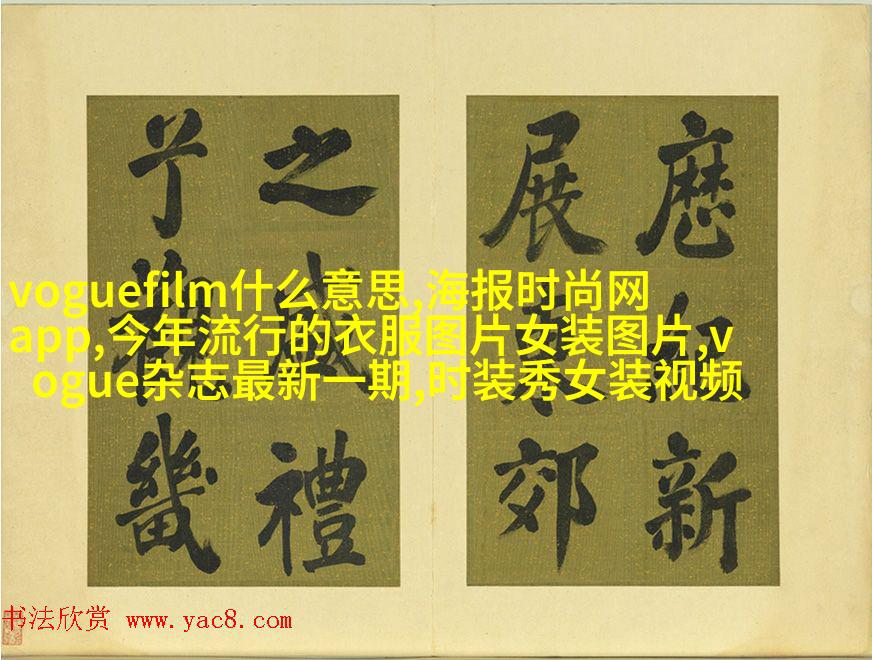 新
展
郊
之盛禮
畿
voguefilm什么意思,海报时尚网
app,今年流行的衣服图片女装图片,v
ogue杂志最新一期,时装秀女装视频
书法欣赏 www.yac8.com